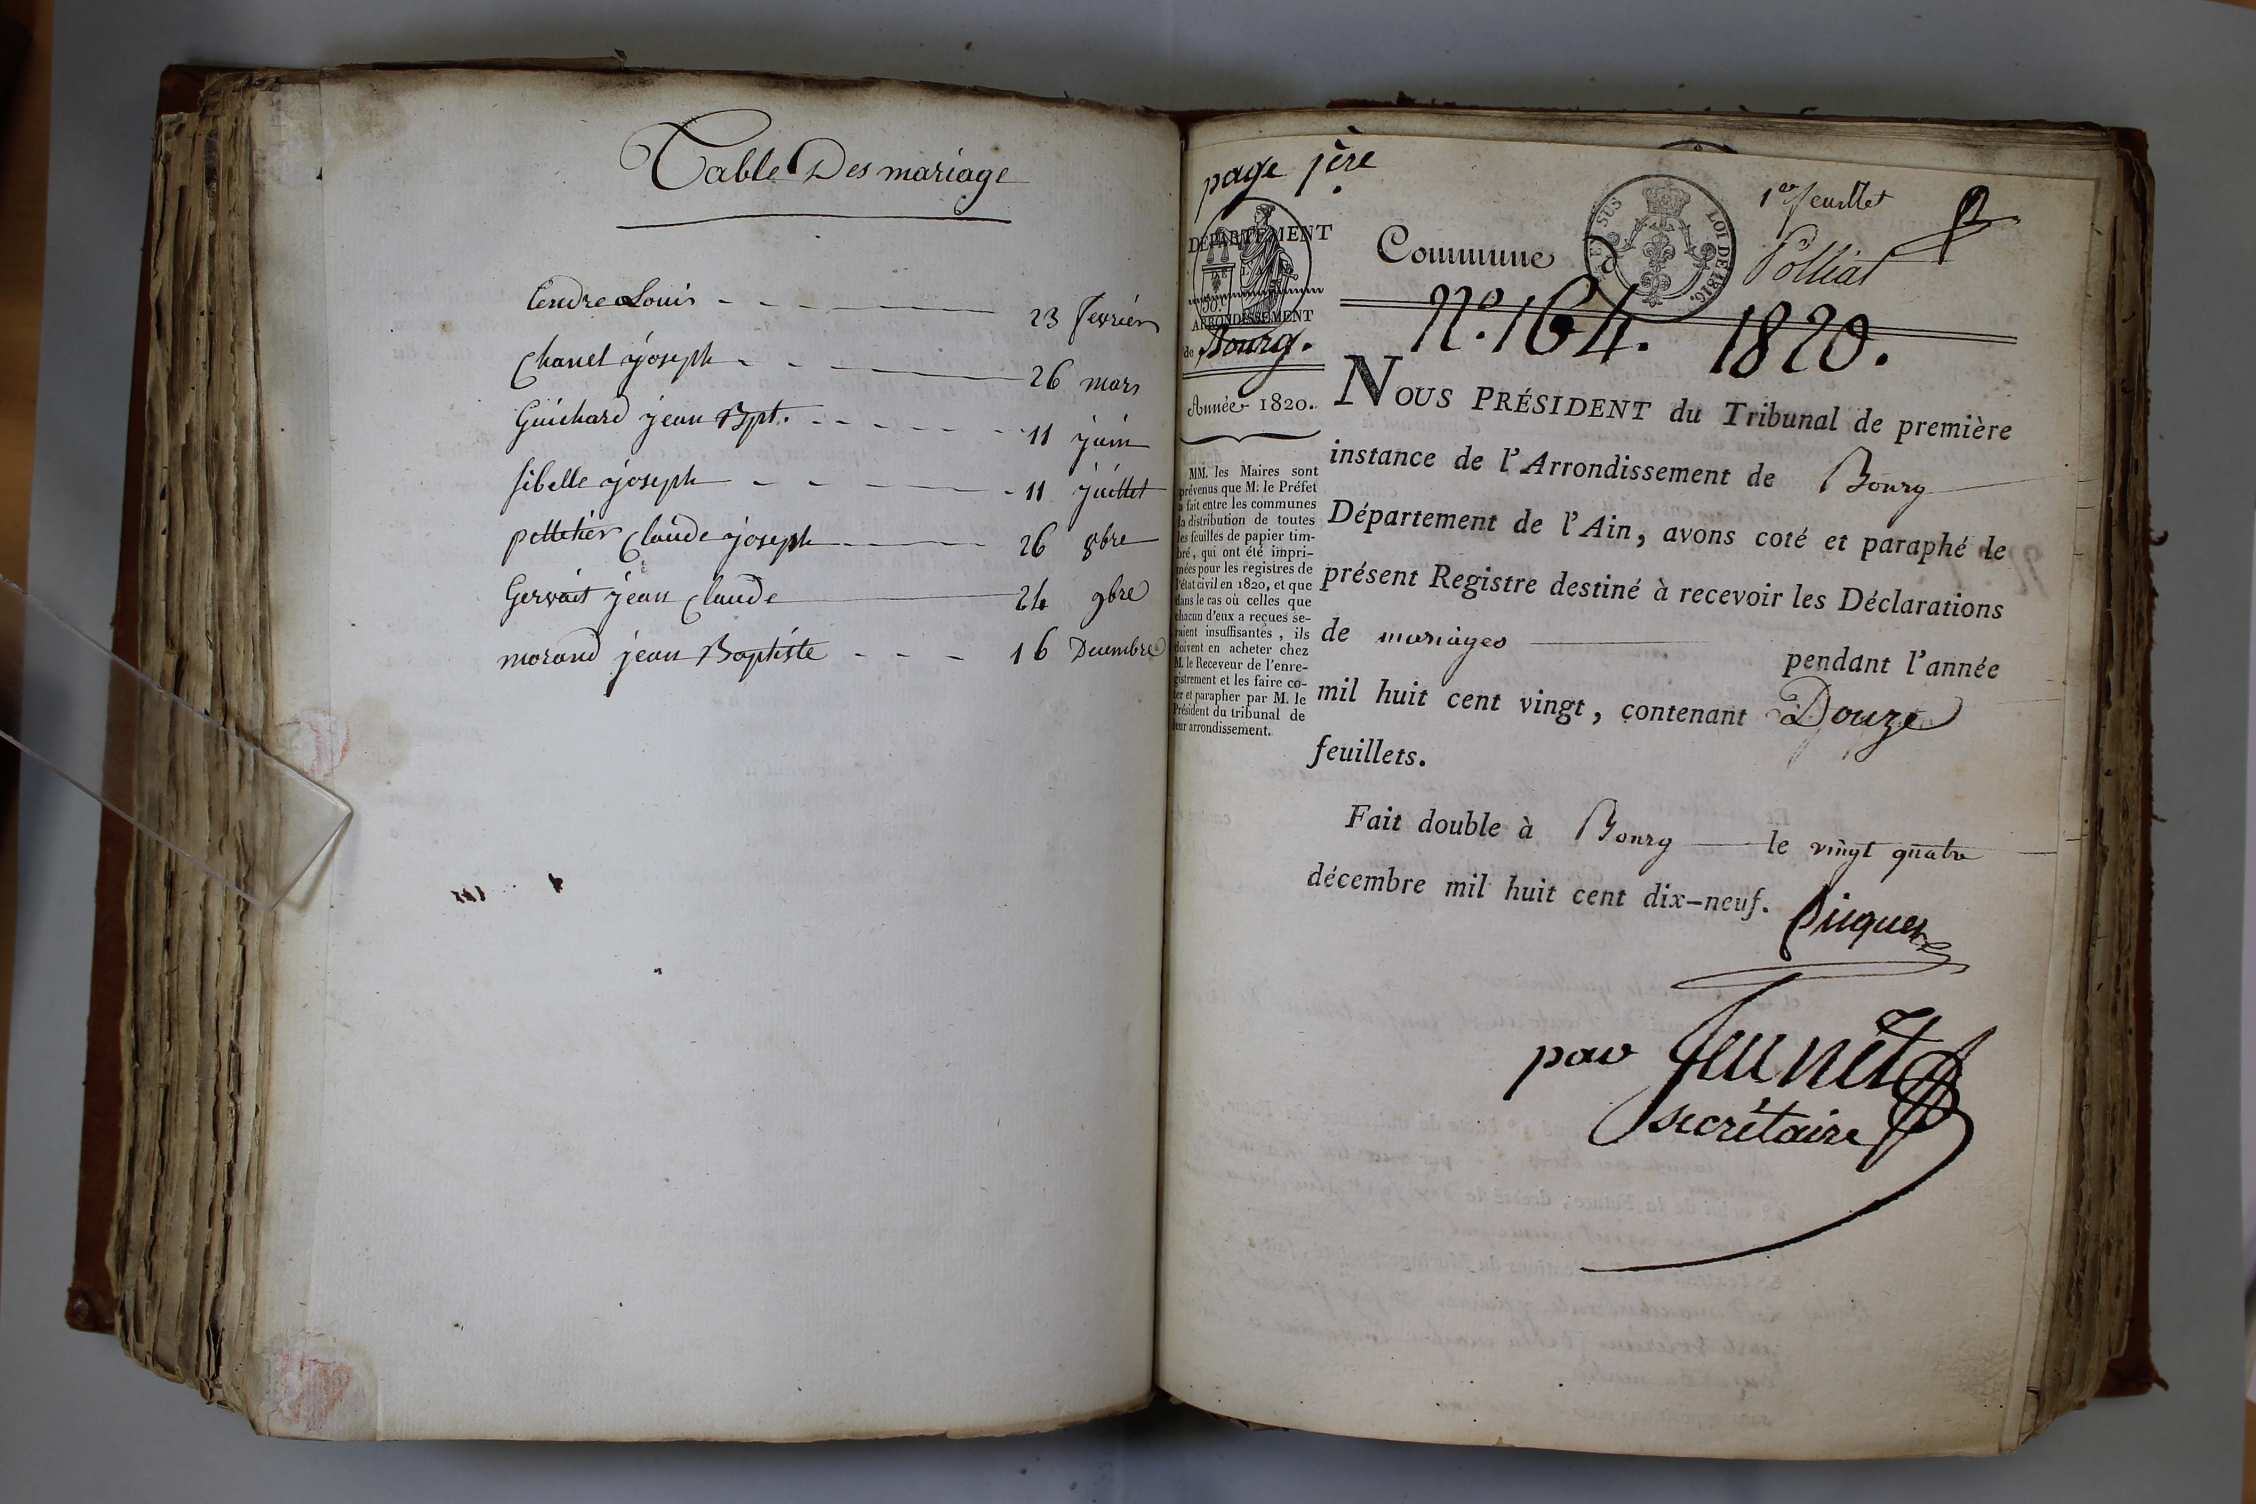 Table Des mariage
Cendre Louis 23 fevrier
Chanel joseph 26 mars
Guichard jean Bpt. 11 juin
sibelle joseph 11 juillet
pelletier Claude joseph 26 8bre
Gervais jean Claude 24 9bre
morand jean Baptiste 16 Decembre
page 1ère
DÉPARTEMENT
DE L'A
50.
ARRONDISSEMENT
de Bourg.
Année 1820.
MM. les Maires sont
prévenus que M. le Préfet
a fait entre les communes
la distribution de toutes
les feuilles de papier tim-
bré, qui ont été impri-
mées pour les registres de
l'état civil en 1820, et que
dans le cas où celles que
chacun d'eux a reçues se-
raient insuffisantes, ils
doivent en acheter chez
M. le Receveur de l'enre-
gistrement et les faire co-
ter et parapher par M. le
Président du tribunal de
leur arrondissement.
1er feuillet
Commune d Polliat
EN SUS LOI DE 1816.
N.º 164. 1820.
NOUS PRÉSIDENT du Tribunal de première
instance de l'Arrondissement de Bourg
Département de l'Ain, avons coté et paraphé le
présent Registre destiné à recevoir les Déclarations
de mariages pendant l'année
mil huit cent vingt, contenant Douze
feuillets.
Fait double à Bourg le vingt quatre
décembre mil huit cent dix-neuf.
Picquet
par Jeunet
secrétaire